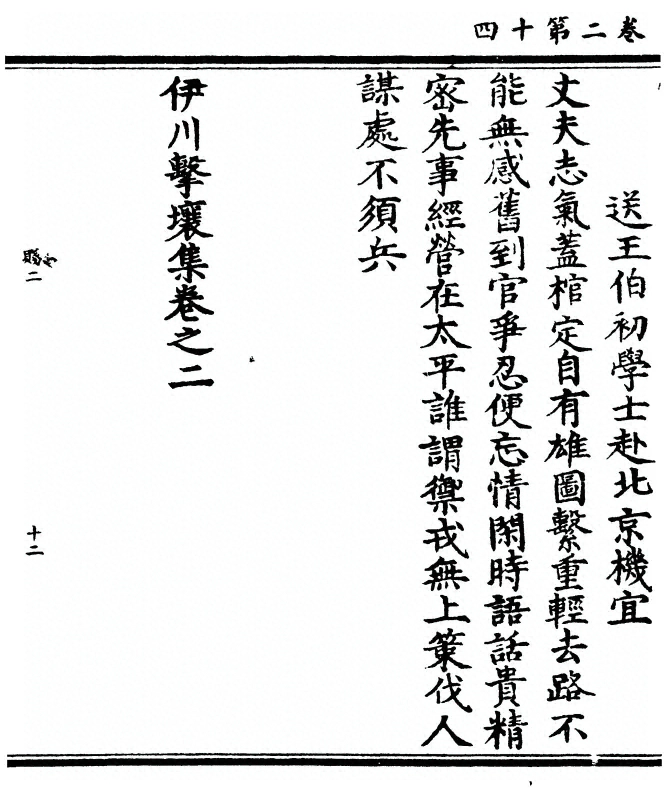 卷二第十四
送王伯初學士赴北京機宜
丈夫志氣蓋棺定自有雄圖繫重輕去路不
能無感舊到官爭忍便忘情閑時語話貴精
密先事經營在太平誰謂禦戎無上策伐人
謀處不須兵
伊川擊壤集卷之二
二
十二